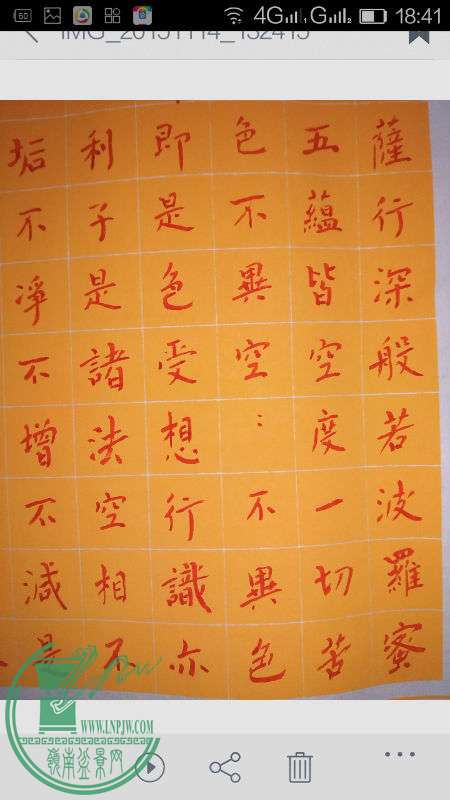 4G 1 G 2 18:41
薩行深般若波羅蜜
五蘊皆空度一切苦
色不異空〻不異色
即是色受想行識亦
利子是諸法空相不
垢不淨不增不減是
WWW.LNPJW.COM
嶺南盆景网